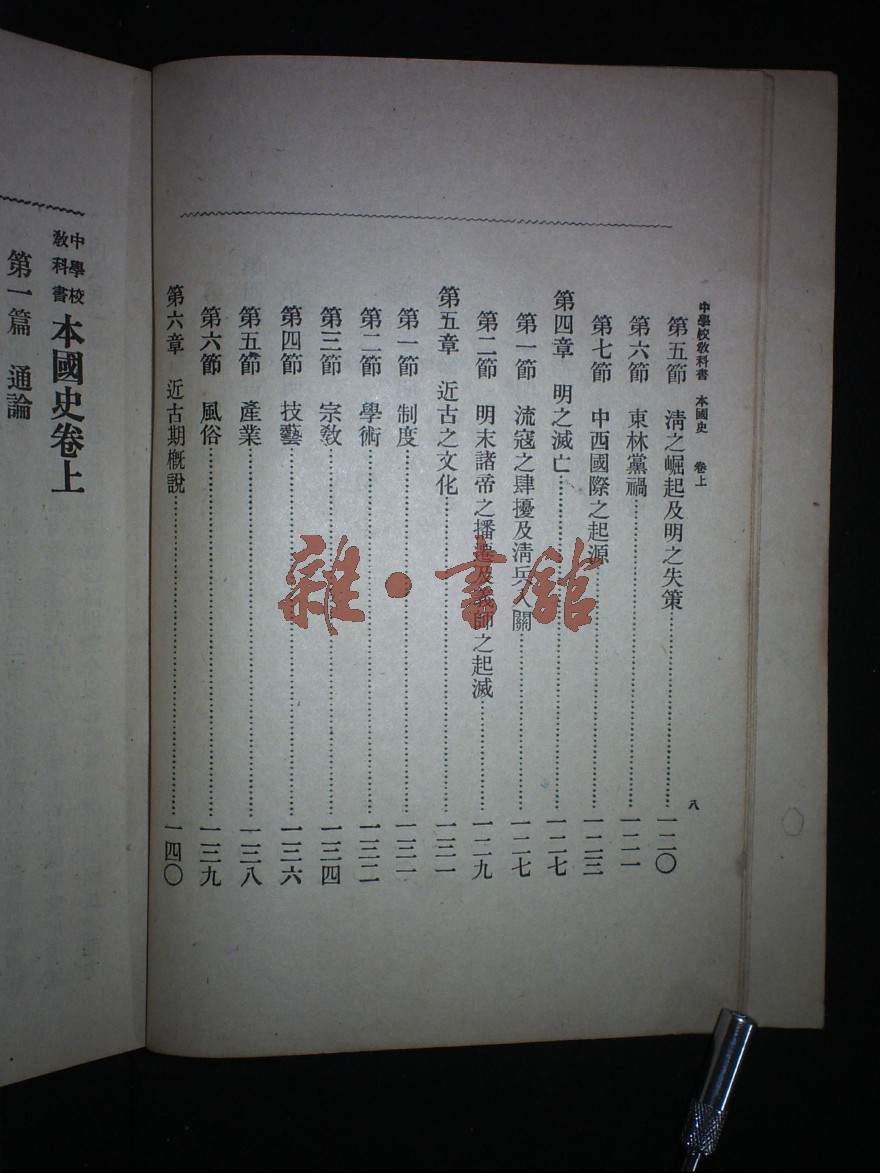 中學校教科書 本國史 卷上
八
第五節 淸之崛起及明之失策 一二〇
第六節 東林黨禍 一二一
第七節 中西國際之起源 一二三
第四章 明之滅亡 一二七
第一節 流寇之肆擾及淸兵入關 一二七
第二節 明末諸帝之播遷及義師之起滅 一二九
第五章 近古之文化 一三一
第一節 制度 一三一
第二節 學術 一三二
第三節 宗敎 一三四
第四節 技藝 一三六
第五節 產業 一三八
第六節 風俗 一三九
第六章 近古期槪說 一四〇
中學校敎科書 本國史卷上
第一篇 通論
雜·書館